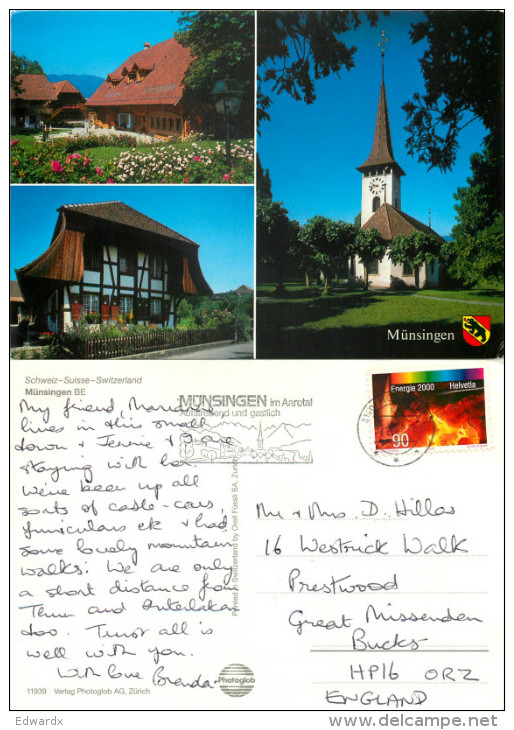 Münsingen
Schweiz–Suisse–Switzerland
Münsingen BE
MÜNSINGEN im Aaretal
Aufstrebend und gastlich
Energie 2000 Helvetia
90
My friend,
lives in this small
town &
staying with her.
We've been up all
sorts of cable-cars,
funiculars etc & had
some lovely mountain
walks. We are only
a short distance from
Thun and Interlaken
too. Trust all is
well with you.
With love Brenda
Printed in Switzerland by Orell Füssli SA, Zürich
Mr & Mrs. D. Hillas
16 Westrick Walk
Prestwood
Great Missenden
Bucks
HP16 ORZ
ENGLAND
Photoglob
11939 Verlag Photoglob AG, Zürich
Edwardx
delcampe.net